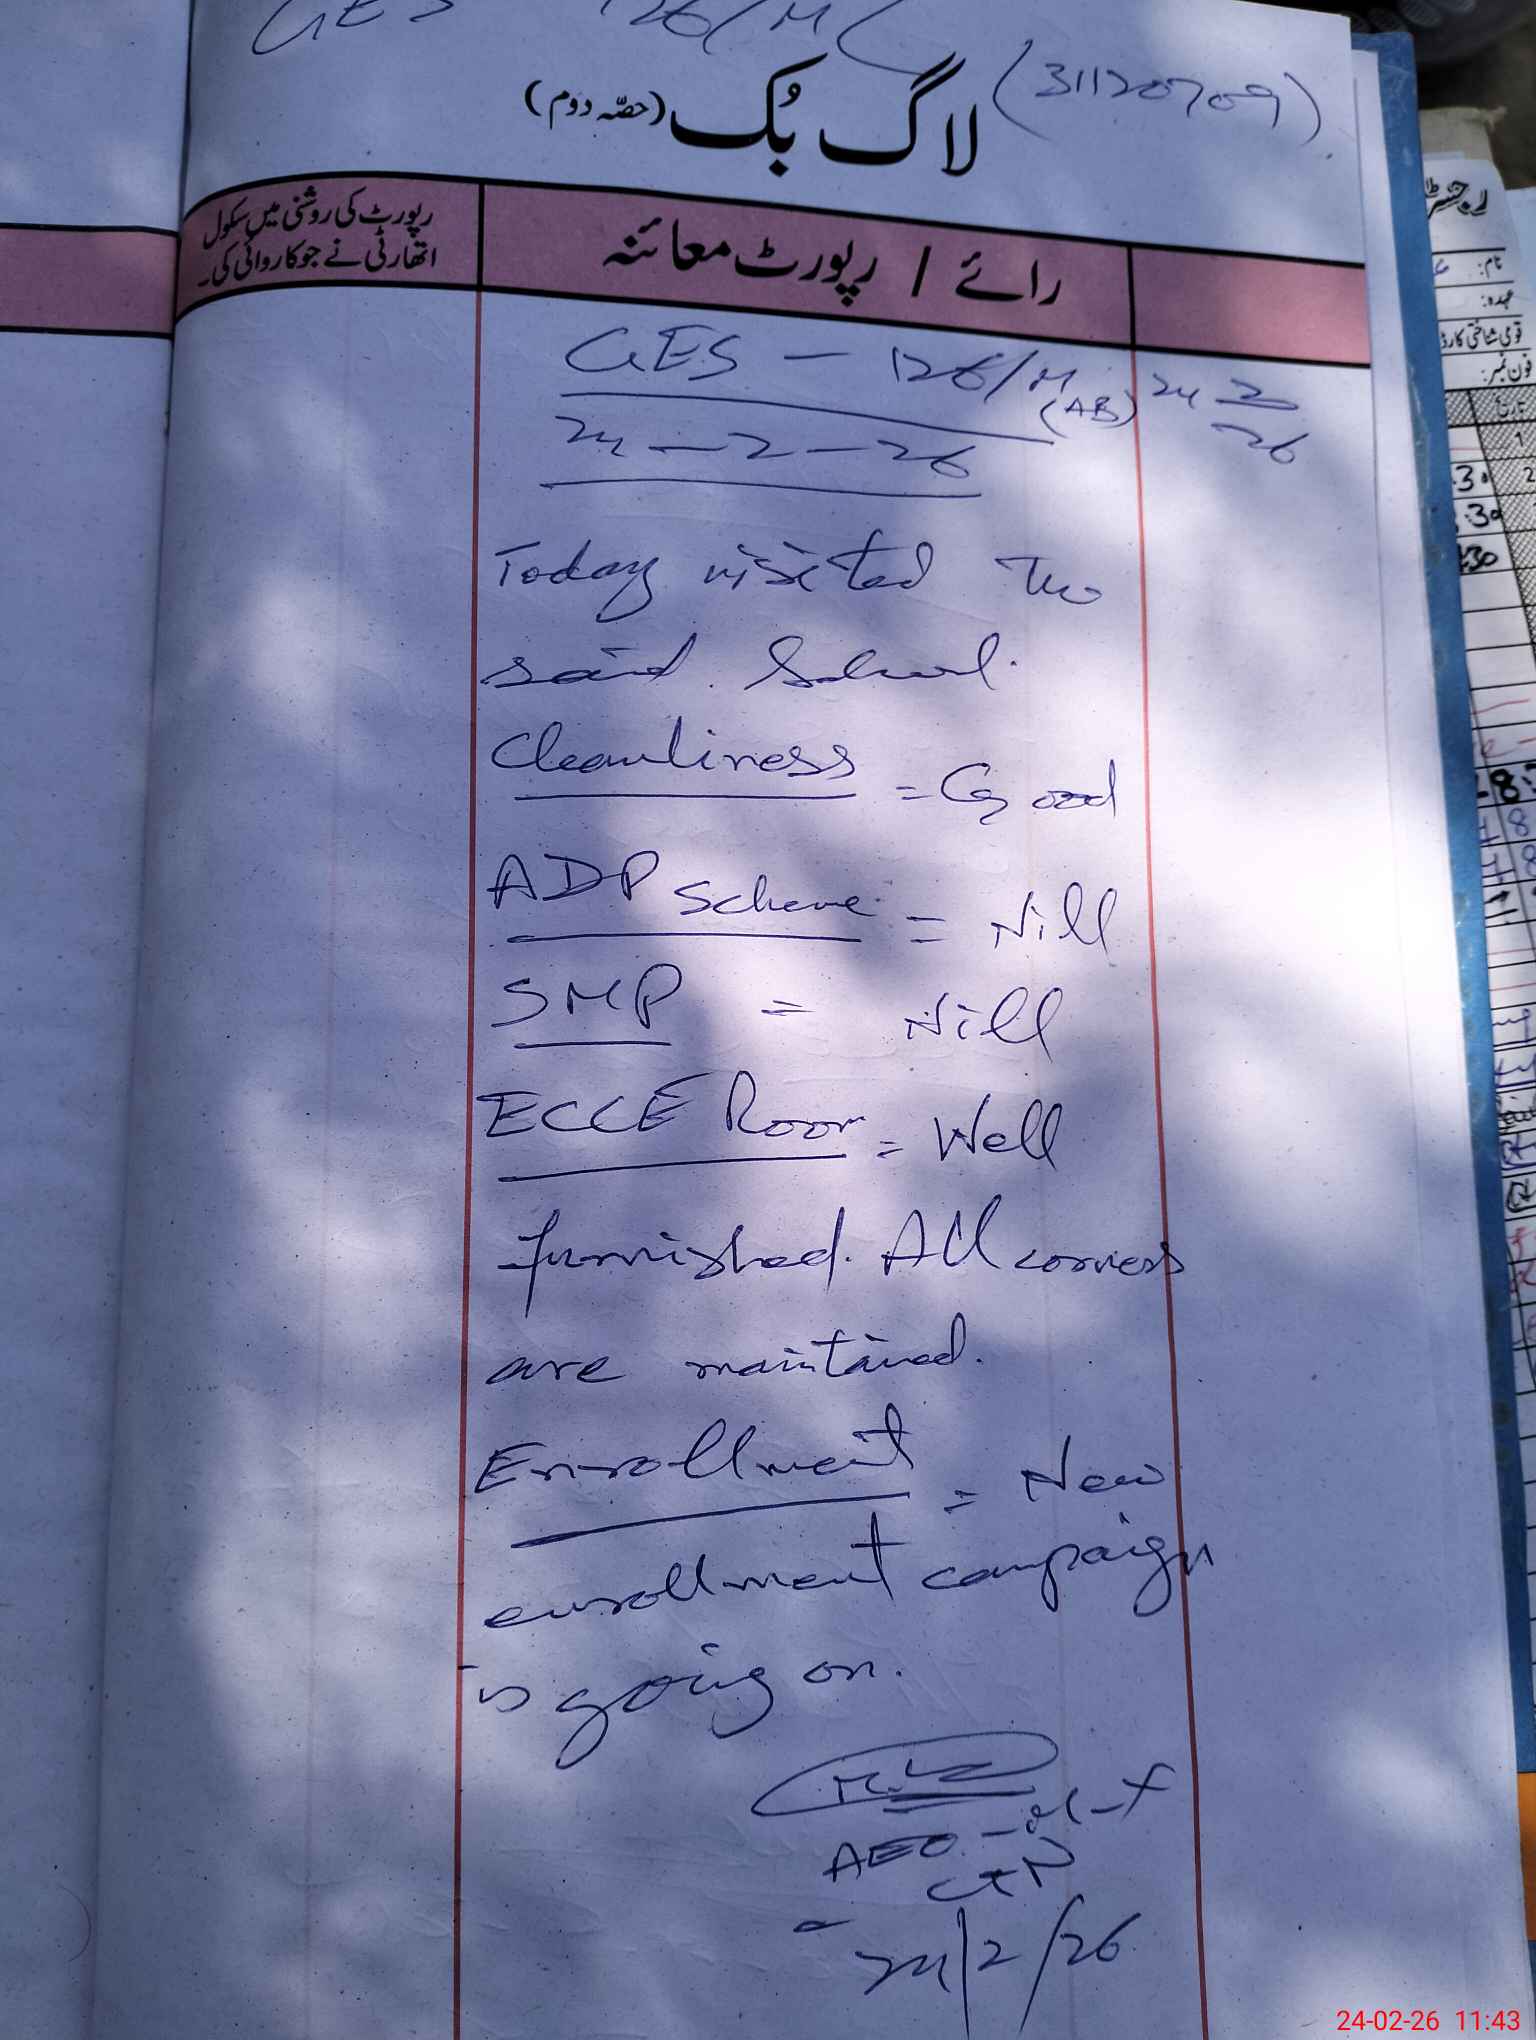 GES 126/M (31120709)
لاگ بُک (حصّہ دوم)
رائے / رپورٹ معائنہ
رپورٹ کی روشنی میں سکول
اتھارٹی نے جو کاروائی کی۔
GES - 126/M (AB)
24-2-26
24 2 26
Today visited the
said School.
Cleanliness = Good
ADP Scheme = Nill
SMP = Nill
ECCE Room = Well
furnished. All corners
are maintained.
Enrollment = New
enrollment campaign
is going on.
AEO-M-
24/2/26
رجسٹر
نام:
عہدہ:
قومی شناختی کارڈ
فون نمبر:
تاریخ
1
2
30
30
:30
24-02-26 11:43